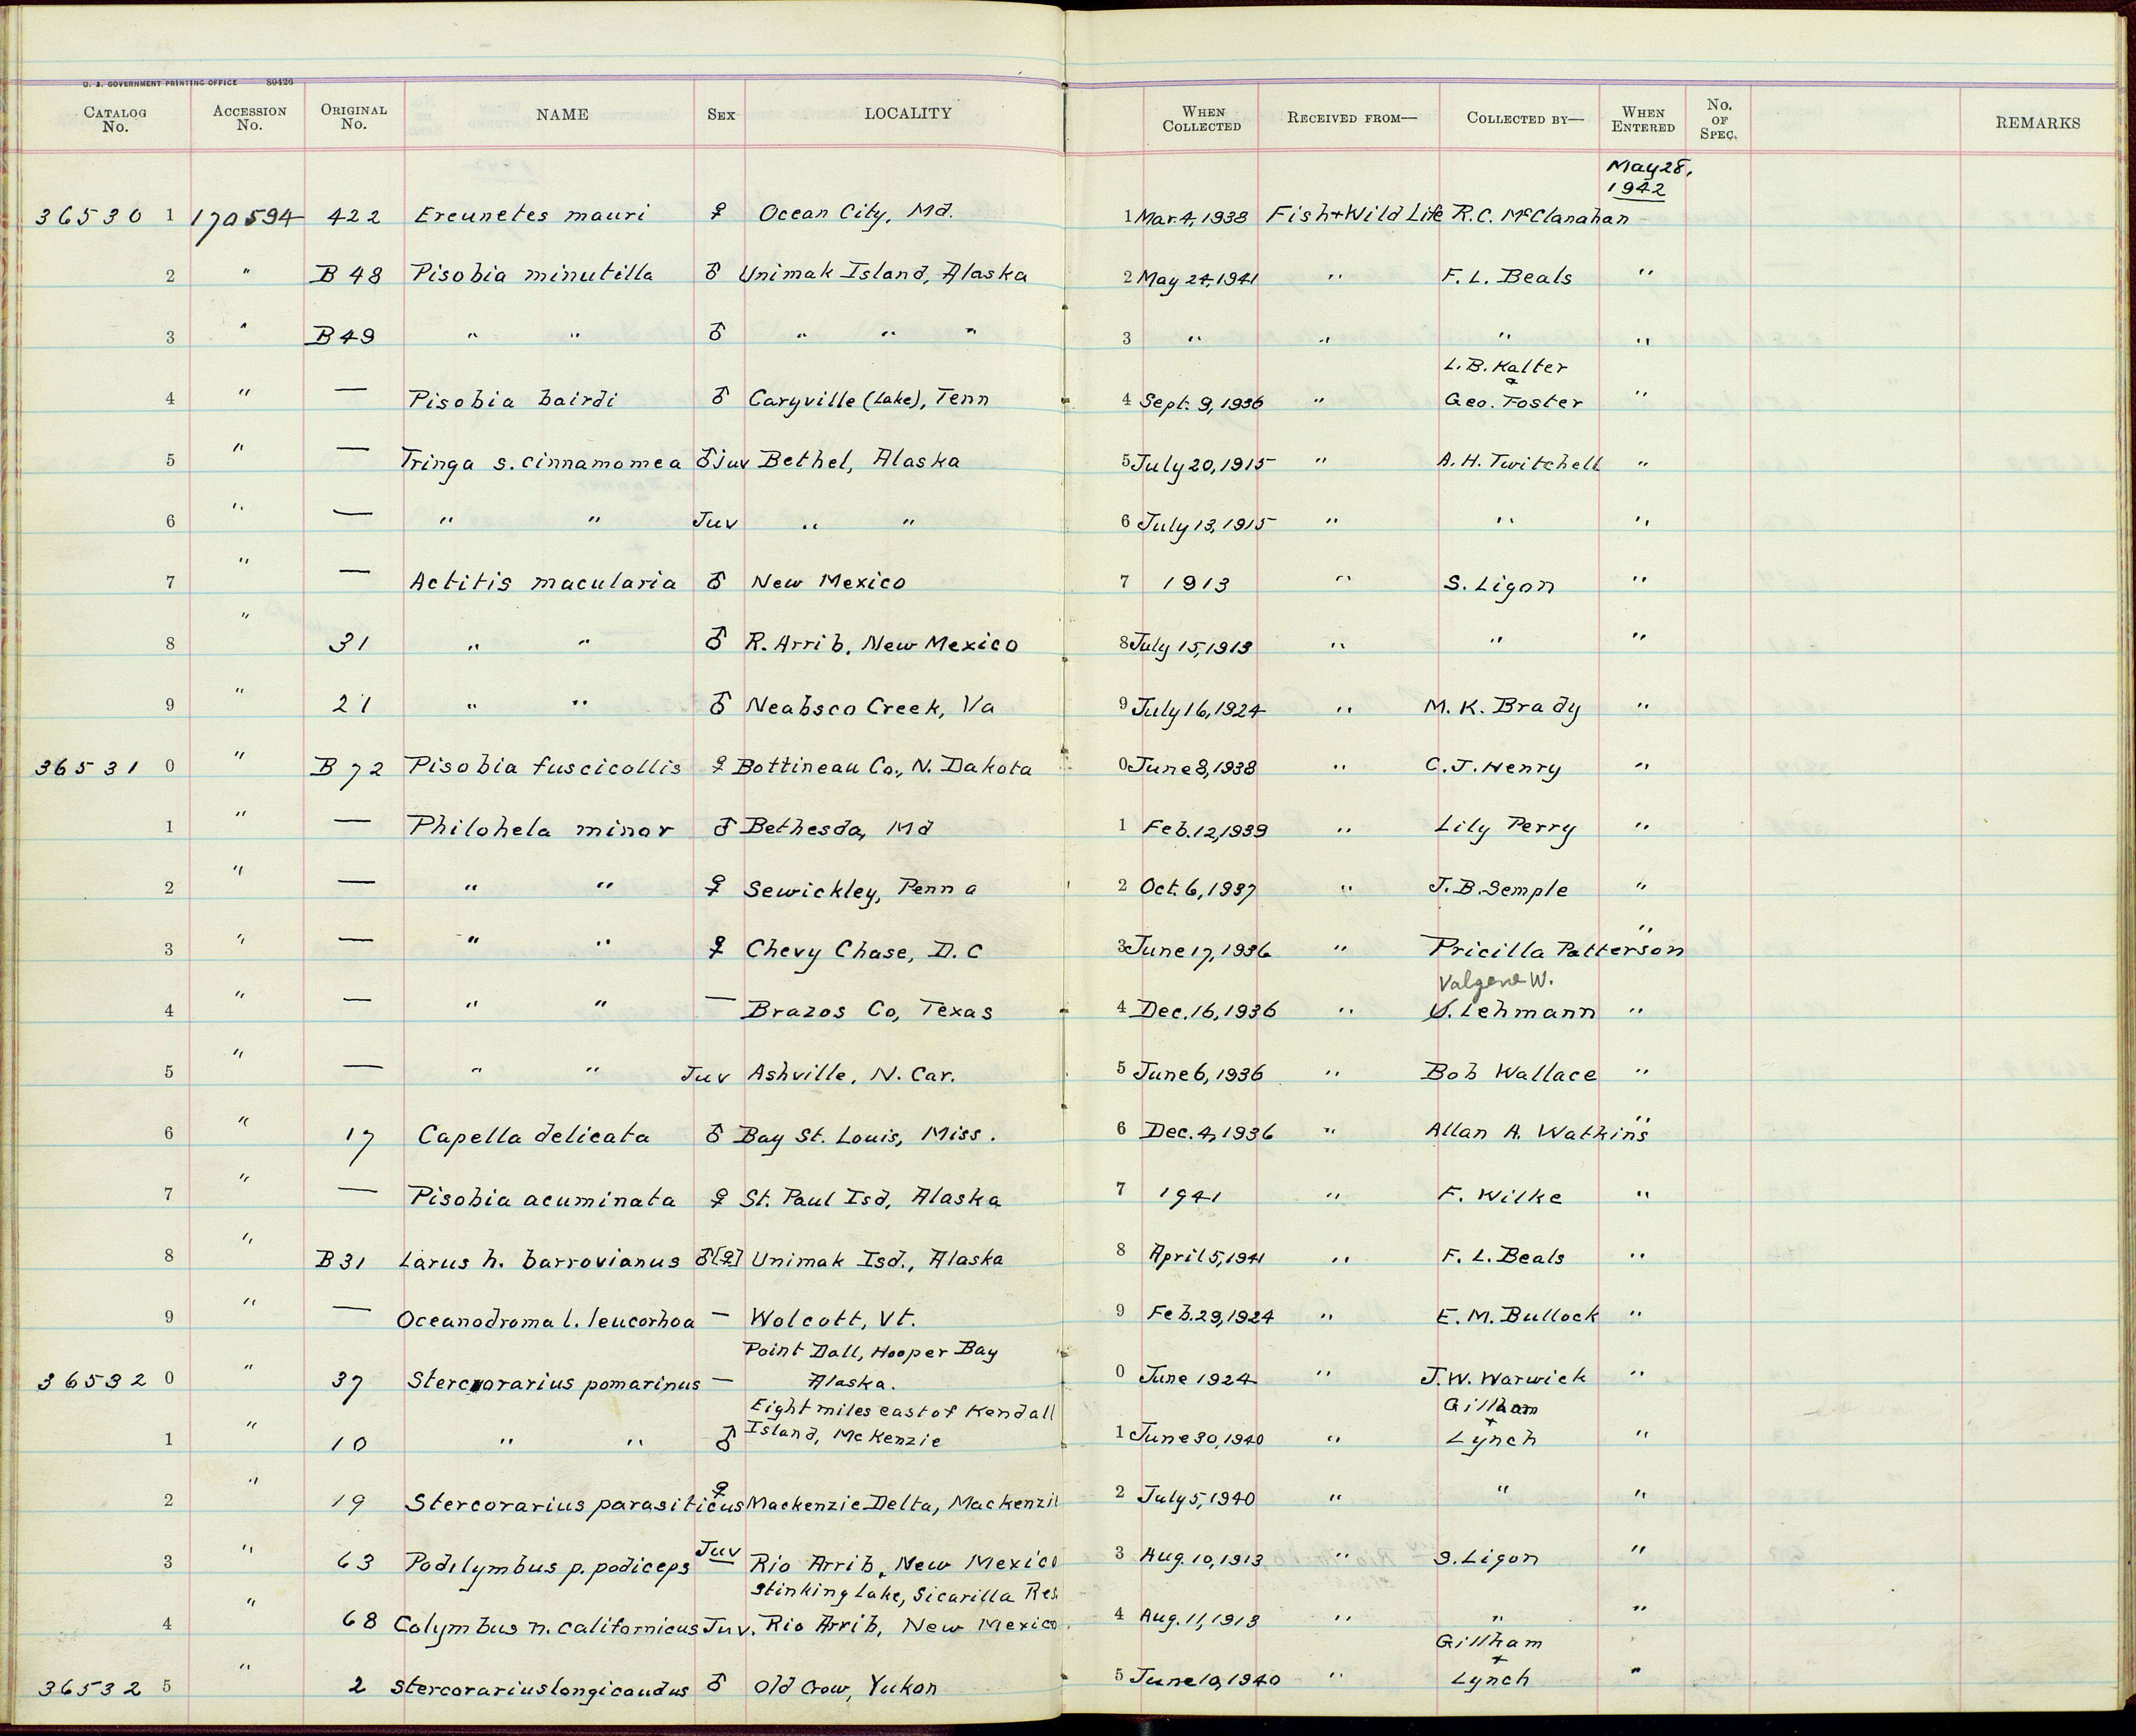 U. S. GOVERNMENT PRINTING OFFICE 89426
CATALOG No. ACCESSION No. ORIGINAL No. NAME SEX LOCALITY WHEN COLLECTED RECEIVED FROM— COLLECTED BY— WHEN ENTERED No. OF SPEC. REMARKS
May 28, 1942
36530 1 170594 422 Ereunetes mauri ♀ Ocean City, Md. 1 Mar. 4, 1938 Fish + Wild Life R. C. McClanahan
2 " B 48 Pisobia minutilla ♂ Unimak Island, Alaska 2 May 24, 1941 " F. L. Beals "
3 " B 49 " " ♂ " " " 3 " " " "
L. B. Kalter
4 " — Pisobia bairdi ♂ Caryville (Lake), Tenn 4 Sept. 9, 1936 " & Geo. Foster "
5 " — Tringa s. cinnamomea ♂ juv Bethel, Alaska 5 July 20, 1915 " A. H. Twitchell "
6 " — " " Juv " " 6 July 13, 1915 " " "
7 " — Actitis macularia ♂ New Mexico 7 1913 " S. Ligon "
8 " 31 " " ♂ R. Arrib, New Mexico 8 July 15, 1913 " " "
9 " 21 " " ♂ Neabsco Creek, Va 9 July 16, 1924 " M. K. Brady "
36531 0 " B 72 Pisobia fuscicollis ♀ Bottineau Co., N. Dakota 0 June 8, 1938 " C. J. Henry "
1 " — Philohela minor ♂ Bethesda, Md 1 Feb. 12, 1939 " Lily Perry "
2 " — " " ♀ Sewickley, Penn a 2 Oct. 6, 1937 " J. B. Semple "
3 " — " " ♀ Chevy Chase, D. C 3 June 17, 1936 " Pricilla Patterson "
Valgene W.
4 " — " " — Brazos Co, Texas 4 Dec. 16, 1936 " V. Lehmann "
5 " — " " Juv Ashville, N. Car. 5 June 6, 1936 " Bob Wallace "
6 " 17 Capella delicata ♂ Bay St. Louis, Miss. 6 Dec. 4, 1936 " Allan A. Watkins "
7 " — Pisobia acuminata ♀ St. Paul Isd, Alaska 7 1941 " F. Wilke "
8 " B 31 Larus h. barrovianus ♂[♀] Unimak Isd., Alaska 8 April 5, 1941 " F. L. Beals "
9 " — Oceanodroma l. leucorhoa — Wolcott, Vt. 9 Feb. 29, 1924 " E. M. Bullock "
Point Dall, Hooper Bay
36532 0 " 37 Stercorarius pomarinus — Alaska. 0 June 1924 " J. W. Warwick "
Eight miles east of Kendall Gillham
1 " 10 " " ♂ Island, McKenzie 1 June 30, 1940 " + Lynch "
2 " 19 Stercorarius parasiticus ♀ Mackenzie Delta, Mackenzie 2 July 5, 1940 " " "
3 " 63 Podilymbus p. podiceps Juv Rio Arrib, New Mexico 3 Aug. 10, 1913 " S. Ligon "
Stinking Lake, Sicarilla Res.
4 " 68 Colymbus n. californicus Juv. Rio Arrib, New Mexico. 4 Aug. 11, 1913 " " "
Gillham
36532 5 " 2 Stercorarius longicaudus ♂ Old Crow, Yukon 5 June 10, 1940 " + Lynch "